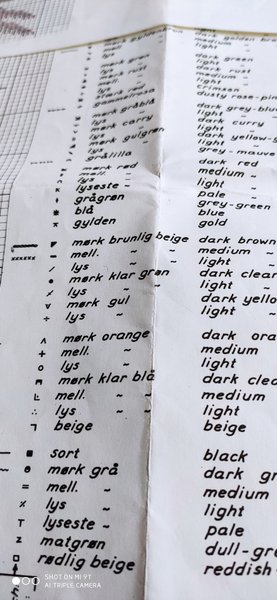 mørk gulbrun dark golden brow
mell. ~ medium ~
lys ~ light ~
mørk grøn dark green
lys ~ light ~
mørk rust dark rust
mell. ~ medium ~
lys ~ light ~
crimson
gammelrosa dusty rose-pin
mørk gråblå dark grey-blue
lys ~ light
mørk carry dark curry
lys ~ light
mørk gulgrøn dark yellow-g
lys ~ light
grålilla grey-mauve
mørk rød dark red
mell. ~ medium ~
lys ~ light ~
lyseste ~ pale ~
grågrøn grey-green
blå blue
gylden gold
mørk brunlig beige dark brown
xxxxxx - mell. ~ ~ medium ~
/ lys ~ ~ light ~
• mørk klar grøn dark clear
lys ~ ~ light ~
v mørk gul dark yello
÷ lys ~ light ~
ʌ mørk orange dark ora
+ mell. ~ medium
o lys ~ light
mørk klar blå dark clea
mell. ~ ~ medium
∴ lys ~ ~ light
┐ beige beige
■ sort black
~ ɵ mørk grå dark gr
= mell. ~ medium
٪ lys ~ light
T lyseste ~ pale
z matgrøn dull-gre
□ rødlig beige reddish
SHOT ON MI 9T
AI TRIPLE CAMERA